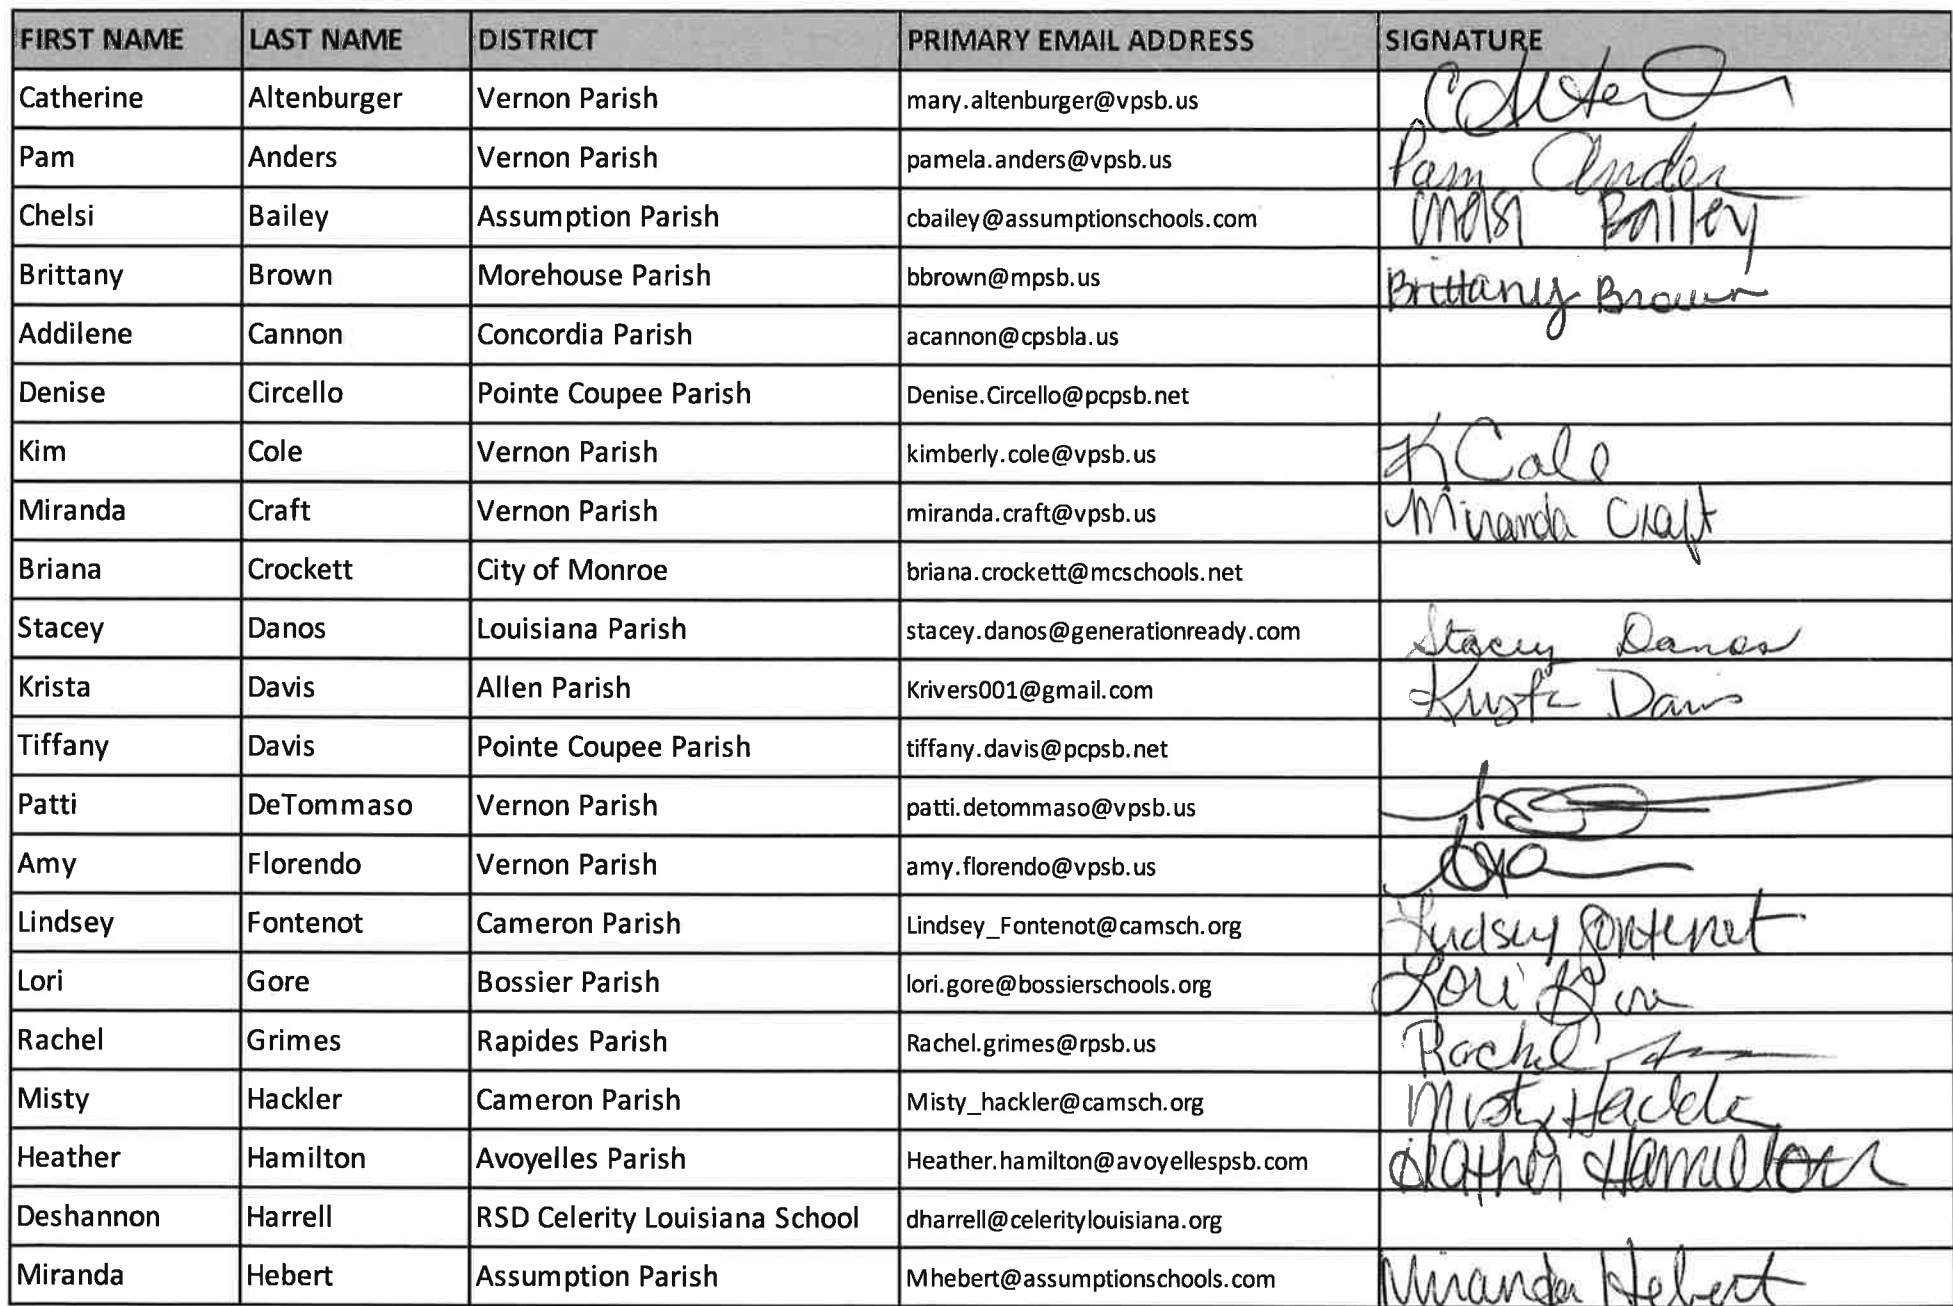 FIRST NAME LAST NAME DISTRICT PRIMARY EMAIL ADDRESS SIGNATURE
Catherine Altenburger Vernon Parish mary.altenburger@vpsb.us
Pam Anders Vernon Parish pamela.anders@vpsb.us Pam Anders
Chelsi Bailey Assumption Parish cbailey@assumptionschools.com Chelsi Bailey
Brittany Brown Morehouse Parish bbrown@mpsb.us Brittany Brown
Addilene Cannon Concordia Parish acannon@cpsbla.us
Denise Circello Pointe Coupee Parish Denise.Circello@pcpsb.net
Kim Cole Vernon Parish kimberly.cole@vpsb.us K Cole
Miranda Craft Vernon Parish miranda.craft@vpsb.us Miranda Craft
Briana Crockett City of Monroe briana.crockett@mcschools.net
Stacey Danos Louisiana Parish stacey.danos@generationready.com Stacey Danos
Krista Davis Allen Parish Krivers001@gmail.com Krista Davis
Tiffany Davis Pointe Coupee Parish tiffany.davis@pcpsb.net
Patti DeTommaso Vernon Parish patti.detommaso@vpsb.us
Amy Florendo Vernon Parish amy.florendo@vpsb.us
Lindsey Fontenot Cameron Parish Lindsey_Fontenot@camsch.org Lindsey Fontenot
Lori Gore Bossier Parish lori.gore@bossierschools.org Lori Gore
Rachel Grimes Rapides Parish Rachel.grimes@rpsb.us Rachel
Misty Hackler Cameron Parish Misty_hackler@camsch.org Misty Hackler
Heather Hamilton Avoyelles Parish Heather.hamilton@avoyellespsb.com Heather Hamilton
Deshannon Harrell RSD Celerity Louisiana School dharrell@celeritylouisiana.org
Miranda Hebert Assumption Parish Mhebert@assumptionschools.com Miranda Hebert